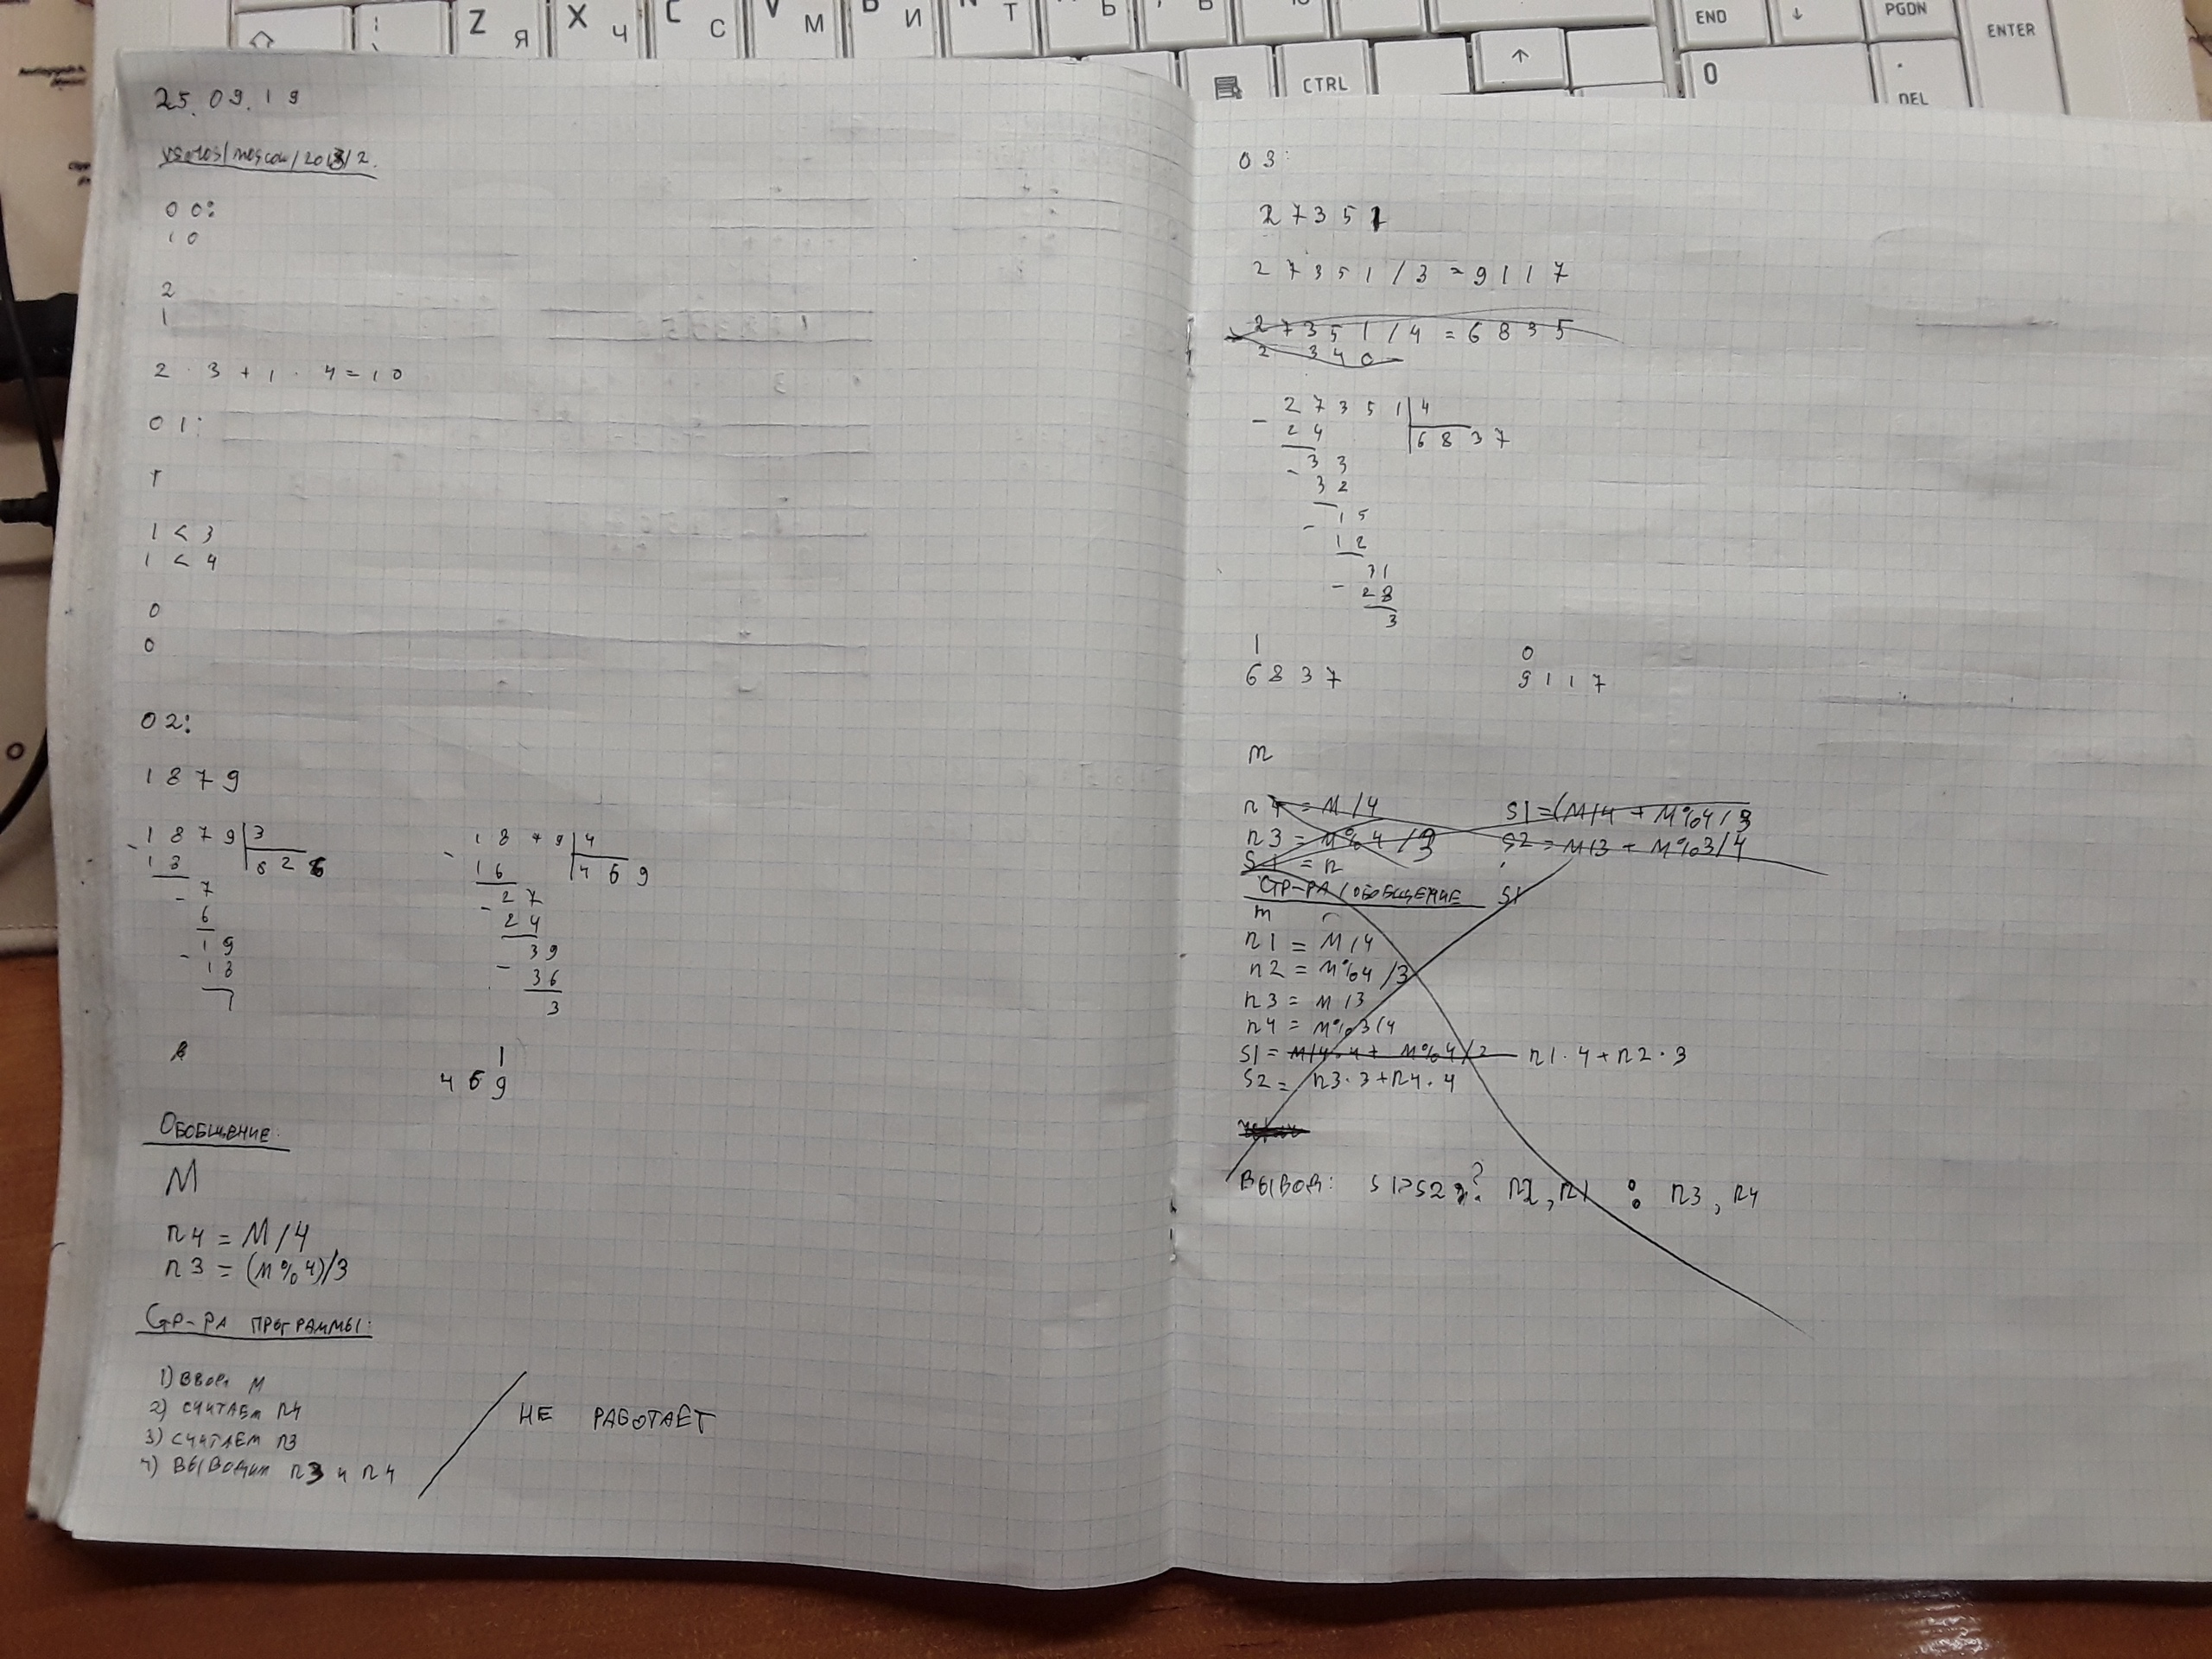 Z Я
X Ч
C С
V М
И
Т
Ь
CTRL
↑
END
↓
PGDN
ENTER
0
.
DEL
25.09.19
/moscow/2013/2.
00:
10
2
1
2 · 3 + 1 · 4 = 10
01:
1
1 < 3
1 < 4
0
0
02:
1879
1879 | 3
18 626
- 7
6
- 19
18
1
- 1879 | 4
16 469
- 27
24
39
- 36
3
1
469
ОБОБЩЕНИЕ:
M
n4 = M/4
n3 = (M%4)/3
СТР-РА ПРОГРАММЫ:
1) ВВОД M
2) СЧИТАЕМ n4
3) СЧИТАЕМ n3
4) ВЫВОДИМ n3 и n4
НЕ РАБОТАЕТ
03:
27351
27351/3 = 9117
27351/4 = 6835
2 340
- 27351 | 4
24 6837
- 33
32
- 15
12
- 31
28
3
1 0
6837 9117
m
n4 = M/4 S1=(M/4 + M%4/3
n3 = M%4/3 S2 = M/3 + M%3/4
S1 = n
СТР-РА/ОБОБЩЕНИЕ S1
m
n1 = M/4
n2 = M%4/3
n3 = M/3
n4 = M%3/4
S1 = M/4·4 + M%4/2 n1·4+n2·3
S2 = n3·3+n4·4
ВЫВОД: S1>S2 ? n2, n1 : n3, n4